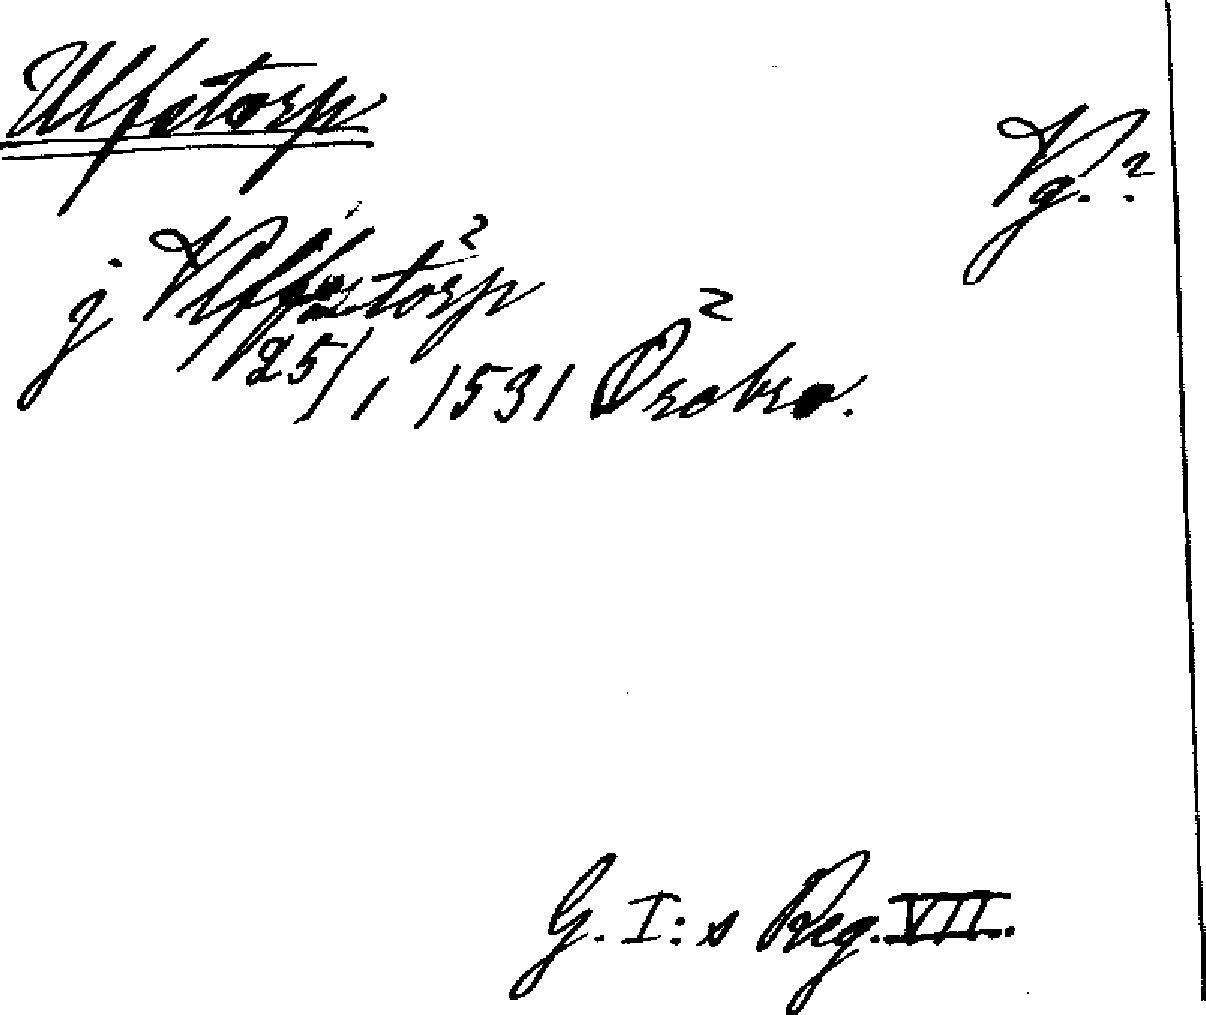 Ulfstorp
Vg.?
j Vlffstorp
25/1 1531 Örebro.
G. I:s Reg. VII.